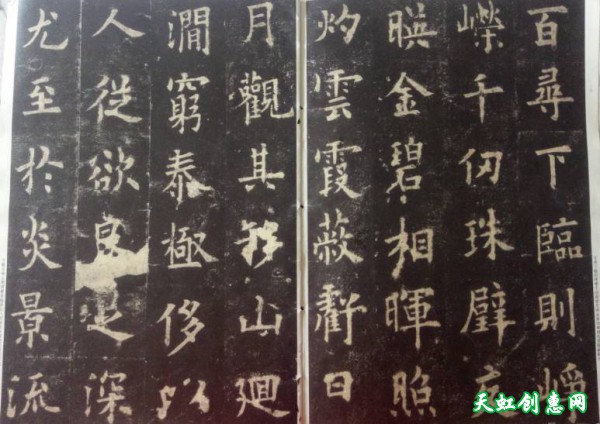 百尋下臨則崢
嶸千仞珠璧交
暎金碧相暉照
灼雲霞蔽虧日
月觀其移山廻
澗窮泰極侈以
人從欲良足深
尤至於炎景流
天虹创惠网